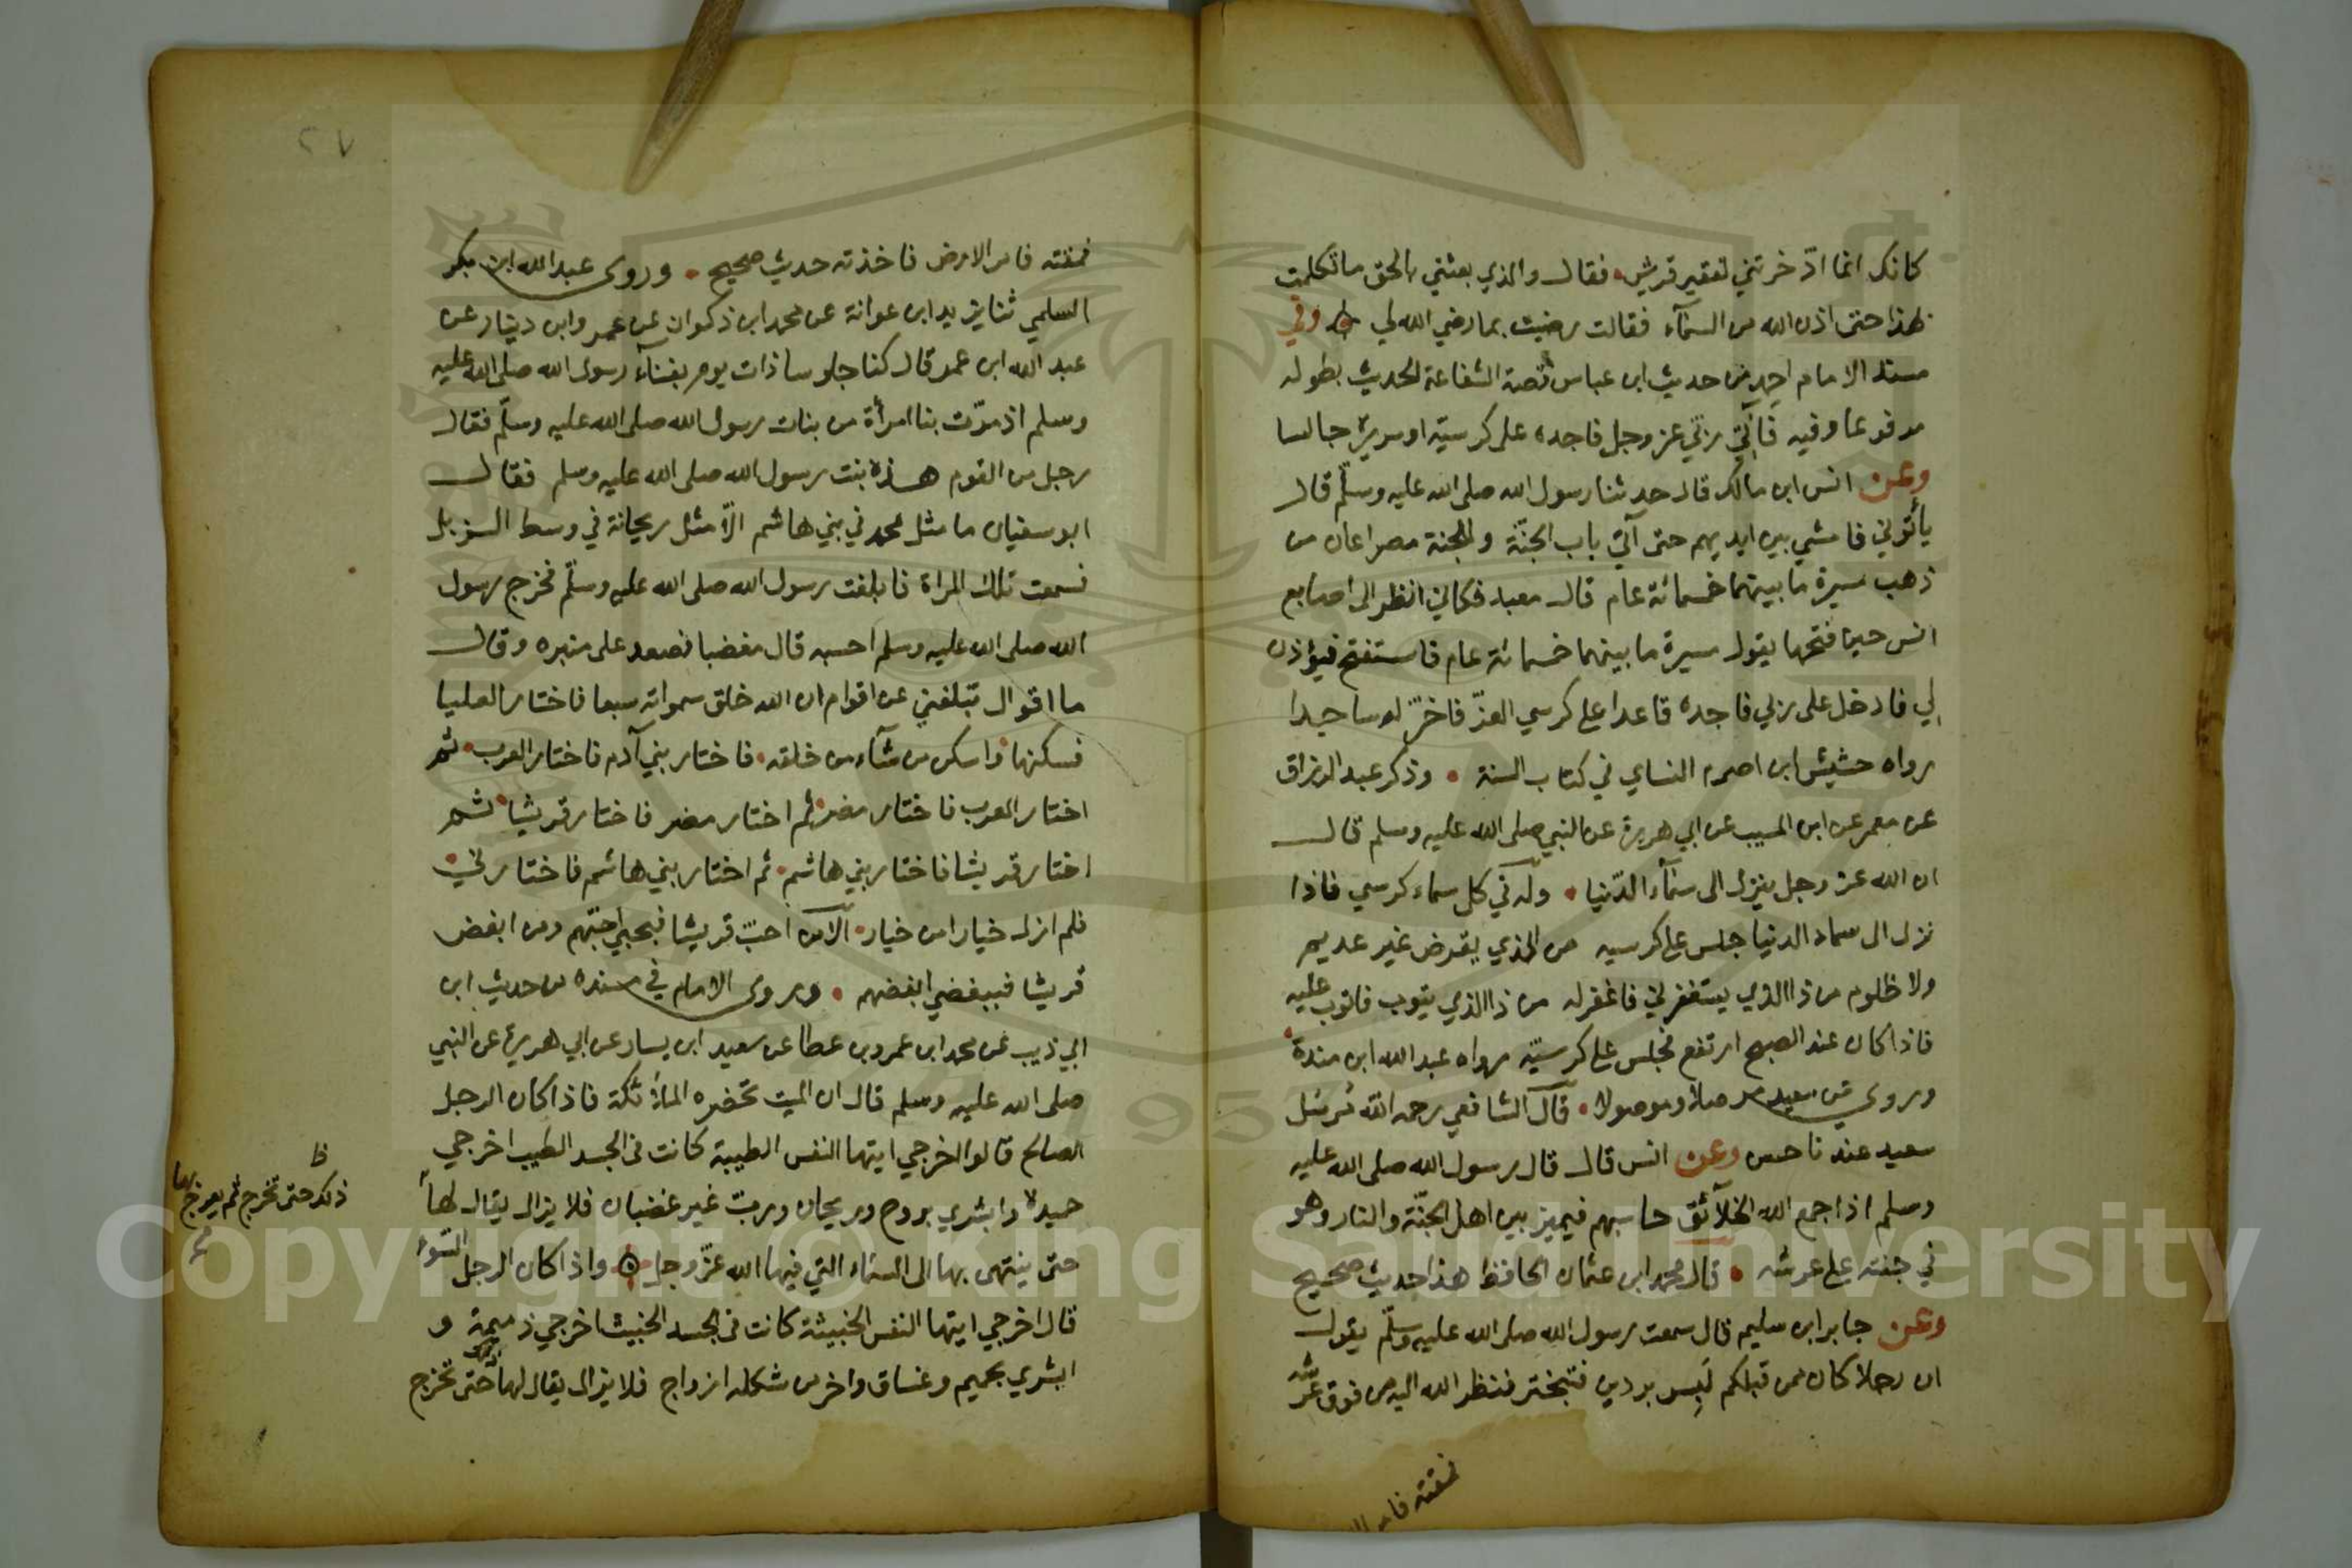 كانك انما ادّخرتني لفقير قريش فقال والذي بعثني بالحق ما تكلمت
بهذا حتى اذن الله من السمآء فقالت رضيت بما رضي الله لي وفي
مسند الامام احمد من حديث ابن عباس قصة الشفاعة الحديث بطوله
مرفوعا وفيه فآتي ربي عز وجل فاجده على كرسيّه او سريره جالسا
وعن انس ابن مالك قال حدثنا رسول الله صلى الله عليه وسلّم قال
يأتوني فامشي بين ايديهم حتى آتي باب الجنّة وللجنة مصراعان من
ذهب مسيرة ما بينهما خمسمائة عام قال معبد فكاني انظر الى اصابع
انس حين فتحها يقول مسيرة ما بينهما خمسمائة عام فاستفتح فيؤذن
لي فادخل على ربي فاجده قاعدا على كرسي العزّ فاخرّ له ساجدا
رواه حشيش ابن اصرم النساي في كتاب السنة وذكر عبد الرزاق
عن معمر عن ابن المسيب عن ابي هريرة عن النبي صلى الله عليه وسلم قال
ان الله عز وجل ينزل الى سمآء الدّنيا وله في كل سماء كرسي فاذا
نزل الى سماء الدنيا جلس على كرسيه من الذي يقرض غير عديم
ولا ظلوم من ذا الذي يستغفرني فاغفر له من ذا الذي يتوب فاتوب عليه
فاذا كان عند الصبح ارتفع فجلس على كرسيّه رواه عبد الله ابن مندة
وروي عن سعيد مرسلا وموصولا قال الشافعي رحمه الله مرسل
سعيد عندنا حسن وعن انس قال قال رسول الله صلى الله عليه
وسلم اذا جمع الله الخلآئق حاسبهم فيميز بين اهل الجنّة والنار وهو
في جنته على عرشه قال محمد ابن عثمان الحافظ هذا حديث صحيح
وعن جابر ابن سليم قال سمعت رسول الله صلى الله عليه وسلّم يقول
ان رجلا كان ممن قبلكم لَبِس بردين فتبختر فنظر الله اليه من فوق عرشه
فمقته فامر
٢٧
فمقته فامر الارض فاخذته حديث صحيح وروى عبد الله ابن بكر
السلمي ثنا يزيد ابن عوانة عن محمد ابن ذكوان عن عمرو ابن دينار عن
عبد الله ابن عمر قال كنا جلوسا ذات يوم بفنآء رسول الله صلى الله عليه
وسلم اذ مرّت بنا امرأة من بنات رسول الله صلى الله عليه وسلّم فقال
رجل من القوم هذه بنت رسول الله صلى الله عليه وسلم فقال
ابو سفيان ما مثل محمد في بني هاشم الّا مثل ريحانة في وسط الزبل
فسمعت تلك المراة فابلغت رسول الله صلى الله عليه وسلّم فخرج رسول
الله صلى الله عليه وسلم احسبه قال مغضبا فصعد على منبره وقال
ما اقوال تبلغني عن اقوام ان الله خلق سمواته سبعا فاختار العليا
فسكنها واسكن من شآء من خلقه فاختار بني آدم فاختار العرب ثم
اختار العرب فاختار مضر ثم اختار مضر فاختار قريشا ثم
اختار قريشا فاختار بني هاشم ثم اختار بني هاشم فاختارني
فلم ازل خيارا من خيار الا من احبّ قريشا فبحبي احبّهم ومن ابغض
قريشا فببغضي ابغضهم وروى الامام في مسنده من حديث ابن
ابي ذيب عن محمد ابن عمرو بن عطا عن سعيد ابن يسار عن ابي هريرة عن النبي
صلى الله عليه وسلم قال ان الميت تحضره الملائكة فاذا كان الرجل
الصالح قالوا اخرجي ايتها النفس الطيبة كانت في الجسد الطيب اخرجي
حميدة وابشري بروح وريحان وربّ غير غضبان فلا يزال يقال لها
ذلك حتى تخرج ثم يعرج بها
حتى ينتهى بها الى السماء التي فيها الله عزّ وجل واذا كان الرجل السّوء
قال اخرجي ايتها النفس الخبيثة كانت في الجسد الخبيث اخرجي ذميمة و
ابشري بحميم وغساق واخر من شكله ازواج فلا يزال يقال لها ذلك حتى تخرج
Copyright © King Saud University